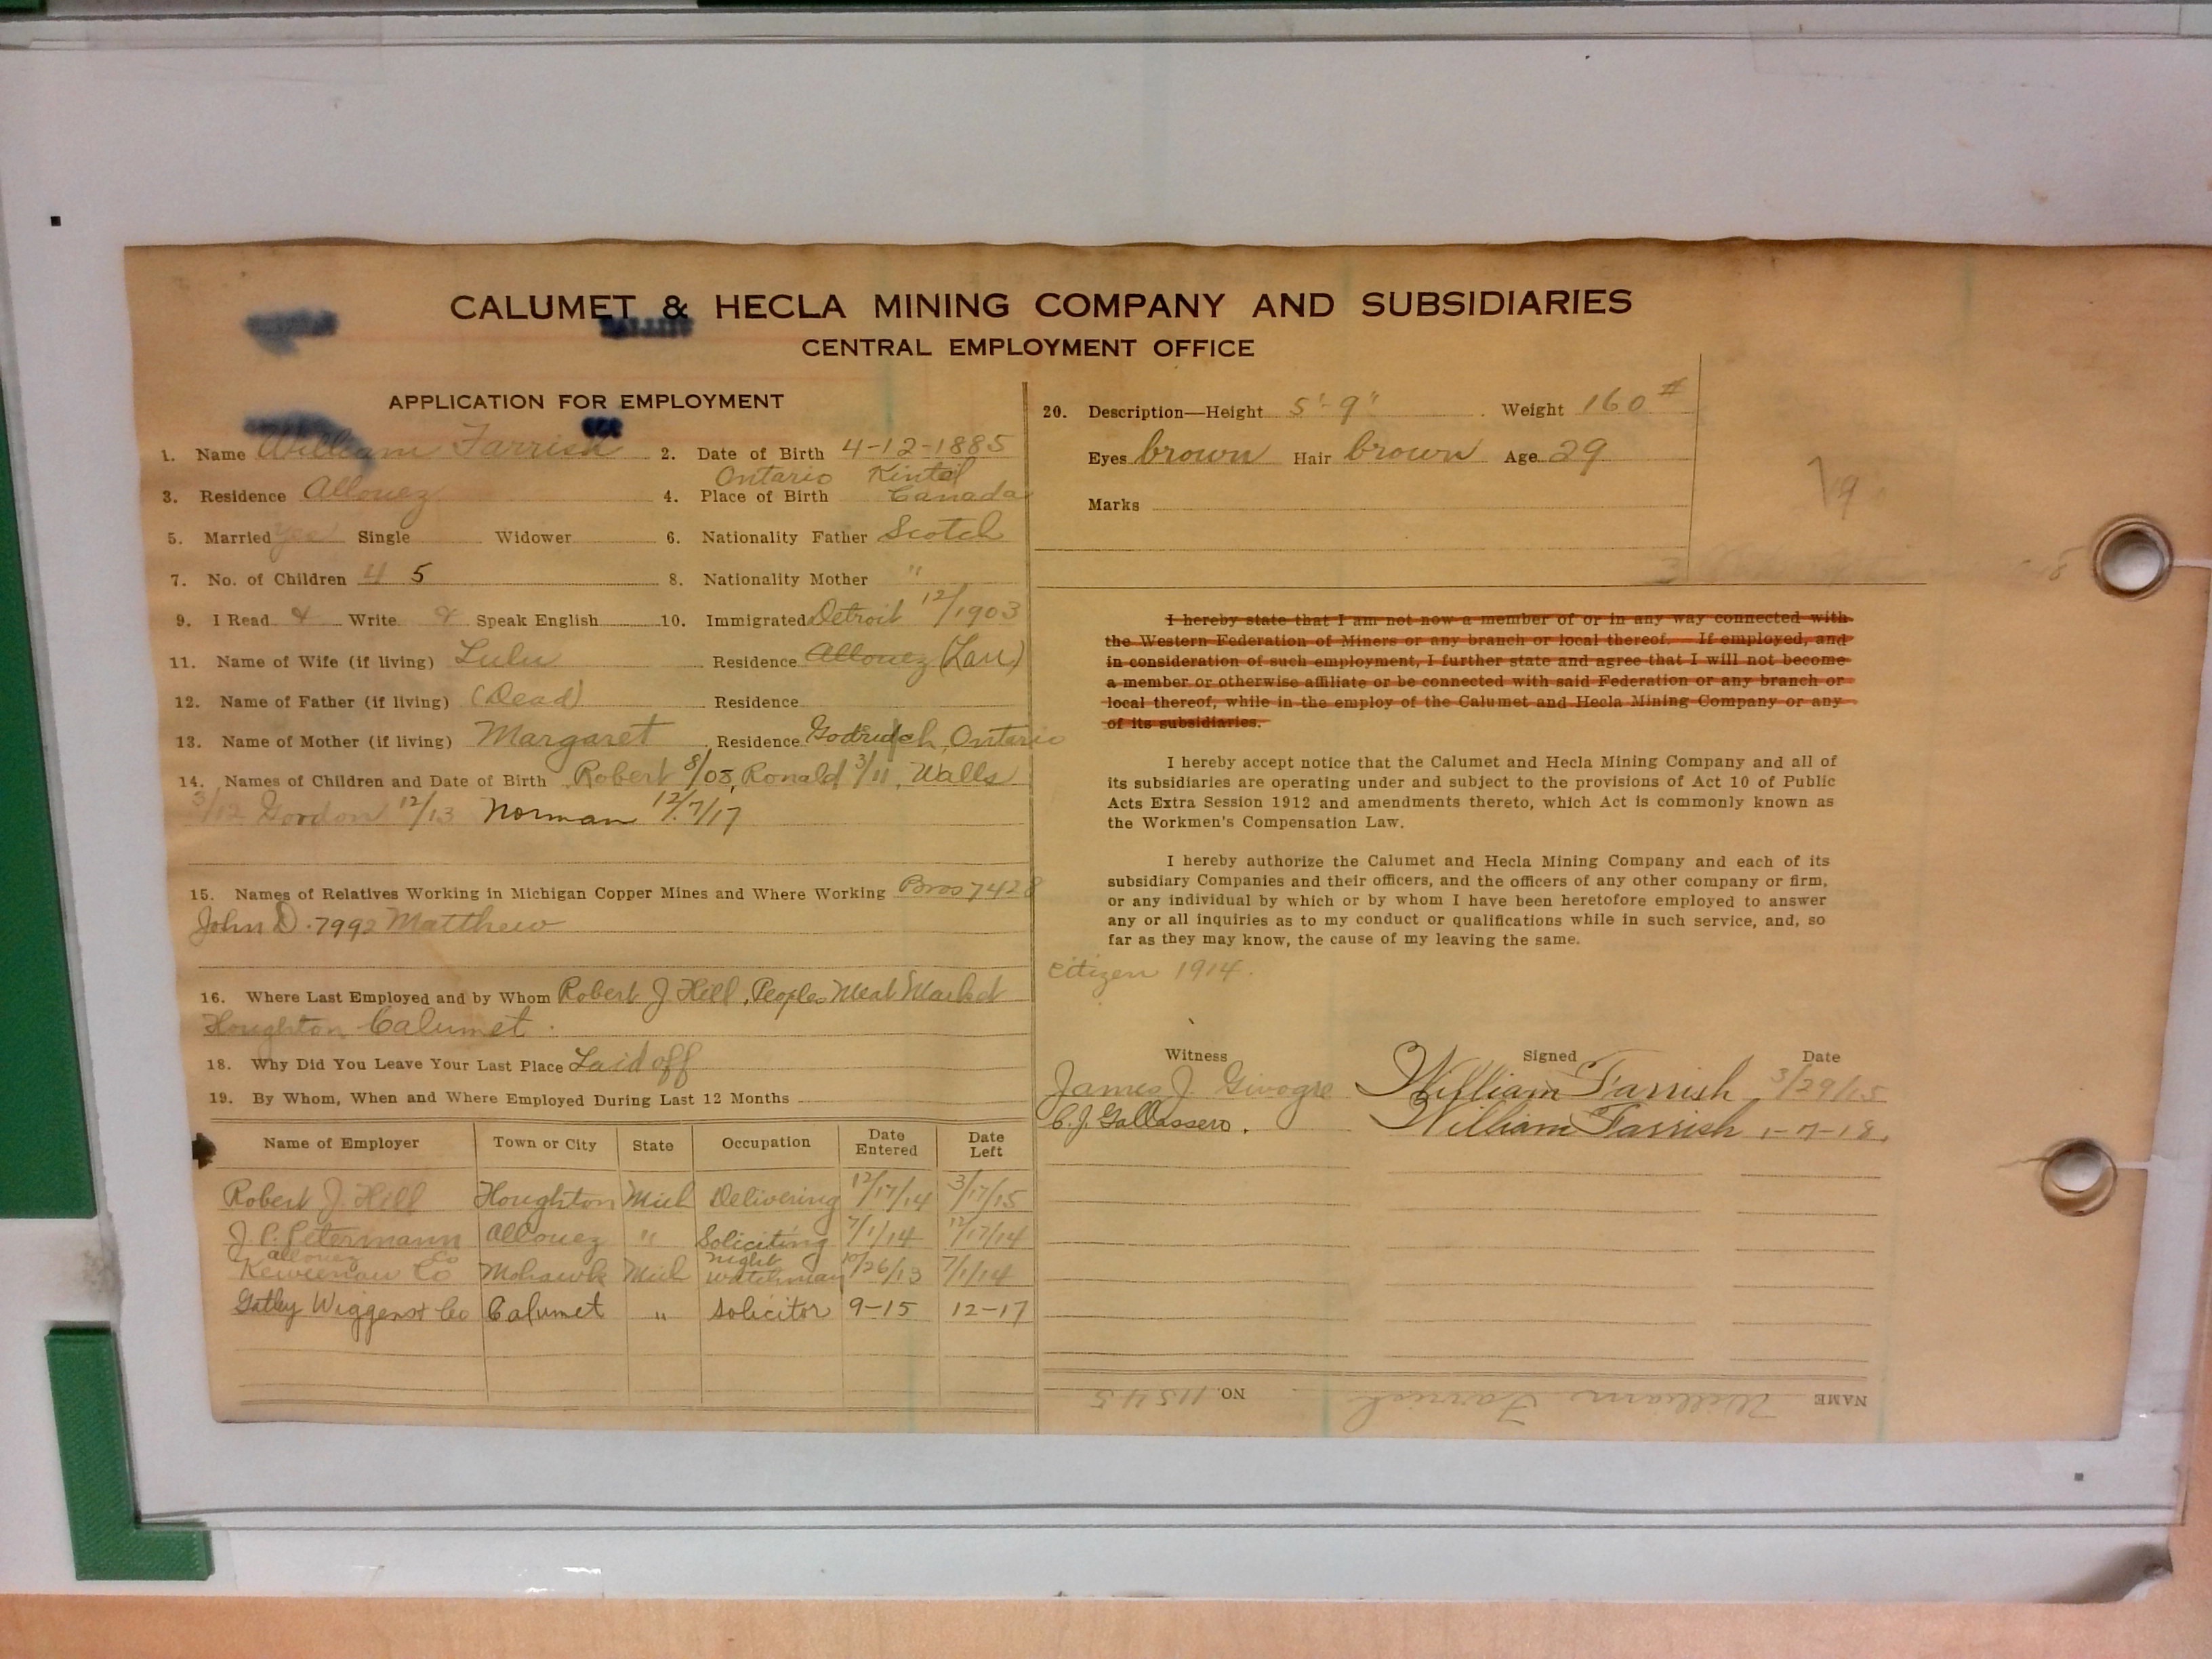 CALUMET & HECLA MINING COMPANY AND SUBSIDIARIES
CENTRAL EMPLOYMENT OFFICE
APPLICATION FOR EMPLOYMENT
1. Name William Farrish 2. Date of Birth 4-12-1885
3. Residence Allouez 4. Place of Birth Ontario Kintail Canada
5. Married yes Single Widower 6. Nationality Father Scotch
7. No. of Children 4 5 8. Nationality Mother "
9. I Read & Write & Speak English 10. Immigrated Detroit 12/1903
11. Name of Wife (if living) Lulu Residence Allouez
12. Name of Father (if living) (Dead) Residence
13. Name of Mother (if living) Margaret Residence Ontario
14. Names of Children and Date of Birth Robert 8/08, Ronald 3/11, Walls
3/12 Gordon 12/13 Norman 12/7/17
15. Names of Relatives Working in Michigan Copper Mines and Where Working Bros 7428
John D. 7992 Matthew
16. Where Last Employed and by Whom Robert J Hill, Peoples Meat Market
Houghton Calumet.
18. Why Did You Leave Your Last Place Laid off
19. By Whom, When and Where Employed During Last 12 Months
Name of Employer Town or City State Occupation Date Entered Date Left
Robert J. Hill Houghton Mich Delivering 12/17/14 3/17/15
J. P. Petermann Allouez " Soliciting 7/1/14 12/17/14
Allouez Co
Keweenaw Co Mohawk Mich night watchman 10/26/13 7/1/14
Gatley Wiggens & Co Calumet " Solicitor 9-15 12-17
20. Description—Height 5'-9" Weight 160#
Eyes brown Hair brown Age 29
Marks
I hereby state that I am not now a member of or in any way connected with
the Western Federation of Miners or any branch or local thereof. If employed, and
in consideration of such employment, I further state and agree that I will not become
a member or otherwise affiliate or be connected with said Federation or any branch or
local thereof, while in the employ of the Calumet and Hecla Mining Company or any
of its subsidiaries.
I hereby accept notice that the Calumet and Hecla Mining Company and all of
its subsidiaries are operating under and subject to the provisions of Act 10 of Public
Acts Extra Session 1912 and amendments thereto, which Act is commonly known as
the Workmen's Compensation Law.
I hereby authorize the Calumet and Hecla Mining Company and each of its
subsidiary Companies and their officers, and the officers of any other company or firm,
or any individual by which or by whom I have been heretofore employed to answer
any or all inquiries as to my conduct or qualifications while in such service, and, so
far as they may know, the cause of my leaving the same.
citizen 1914.
Witness Signed Date
James J. Givogre William Farrish 3/29/15
C. J. Gallassero. William Farrish 1-7-18.
NAME William Farrish NO. 11545